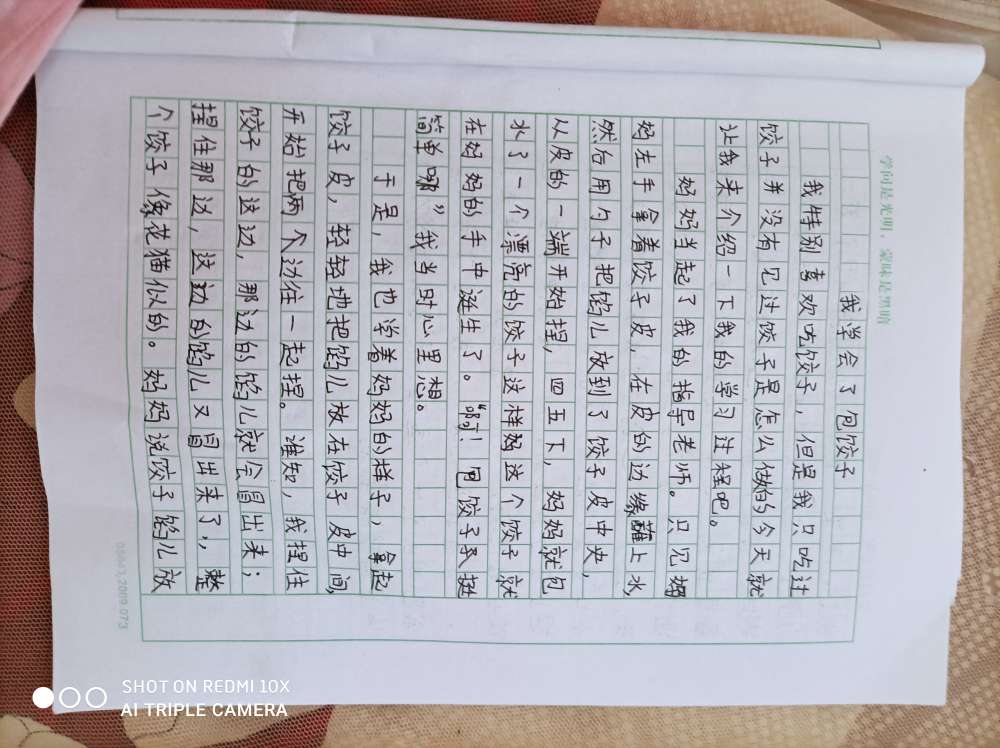 学问是光明,蒙昧是黑暗
我学会了包饺子
我特别喜欢吃饺子,但是我只吃过
饺子并没有见过饺子是怎么做的今天就
让我来介绍一下我的学习过程吧。
妈妈当起了我的指导老师。只见妈
妈左手拿着饺子皮,在皮的边缘蘸上水,
然后用勺子把馅儿放到了饺子皮中央,
从皮的一端开始捏,四五下,妈妈就包
水了一个漂亮的饺子这样妈这个饺子就
在妈妈的手中诞生了。“啊!包饺子不挺
简单嘛”我当时心里想。
于是,我也学着妈妈的样子,拿起
饺子皮,轻轻地把馅儿放在饺子皮中间,
开始把两个边往一起捏。谁知,我捏住
饺子的这边,那边的馅儿就会冒出来;
捏住那边,这边的馅儿又冒出来了!,整
个饺子像花猫似的。妈妈说饺子馅儿放
SHOT ON REDMI 10X
AI TRIPLE CAMERA